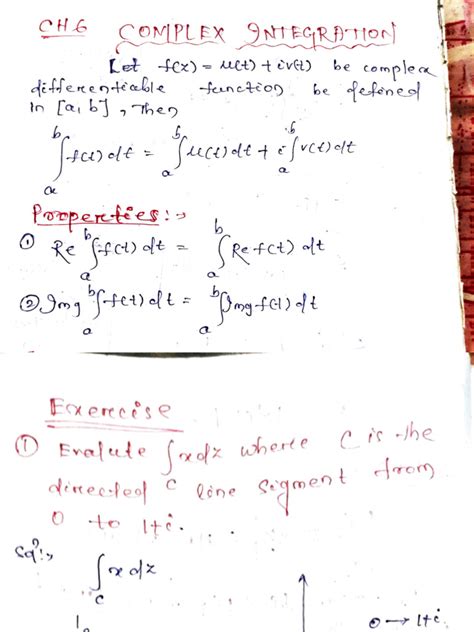 CH6 COMPLEX INTEGRATION
Let f(z) = u(t) + iv(t) be complex
differentiable function be defined
in [a, b], Then
∫_a^b f(t) dt = ∫_a^b u(t) dt + i ∫_a^b v(t) dt
Properties :→
① Re ∫_a^b f(t) dt = ∫_a^b Re f(t) dt
② Img ∫_a^b f(t) dt = ∫_a^b Img f(t) dt
Exercise
① Evalute ∫_c x dz where C is the
directed line segment from
0 to 1+i.
Solⁿ:→
∫_c x dz
0 → 1+i.